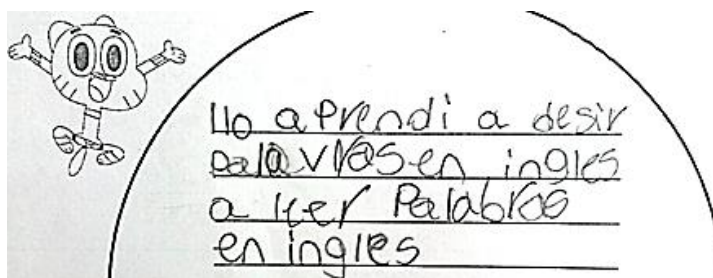 Yo aprendi a desir
palavras en ingles
a leer Palabras
en ingles